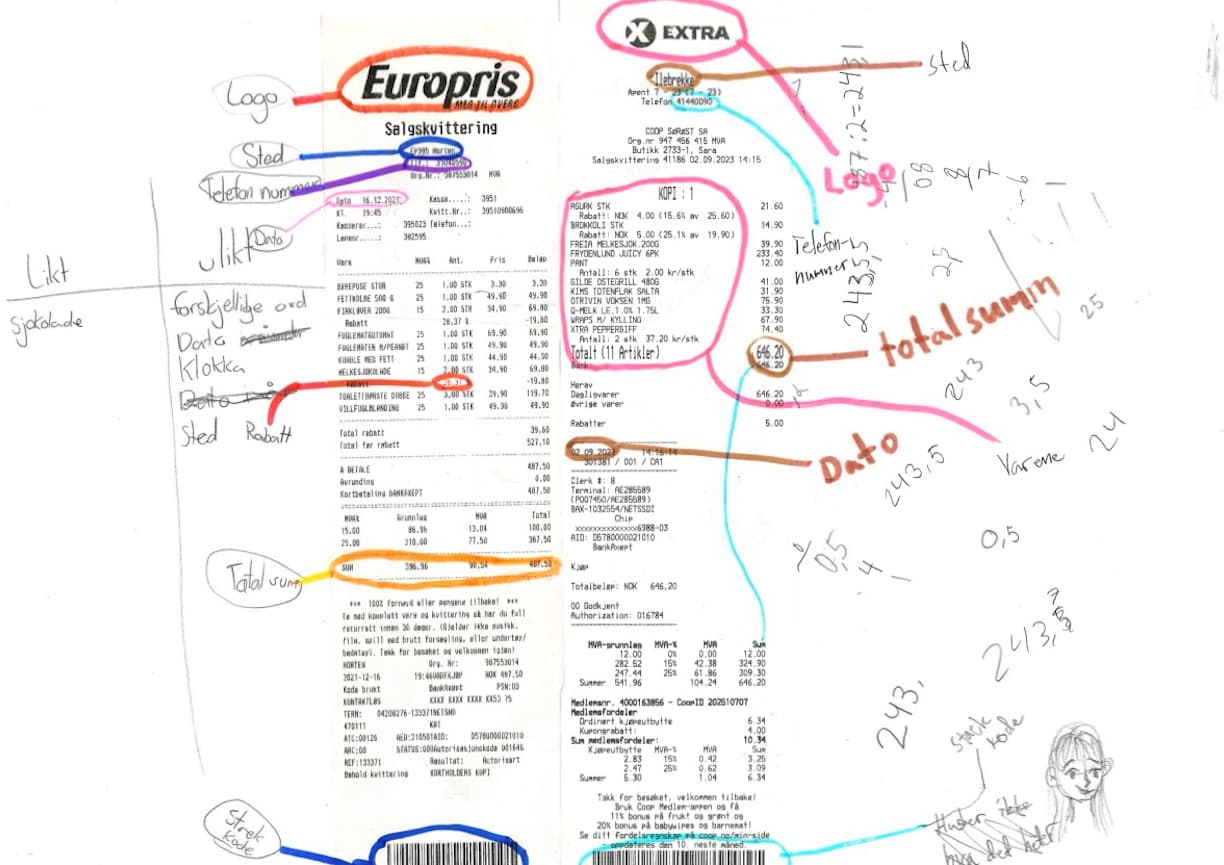 Logo
Sted
Telefon nummer
Dato
Likt
Ulikt
sjokolade
forskjellige ord
Dato
Klokka
Sted
Rabatt
Total sum
Strek
kode
Europris
MER TIL OVERS
Salgskvittering
EP395 Horten
Org.Nr: 987553014 MVA
Dato 16.12.2021 Kasse.....: 3951
Kl. 19:45 Kvitt.Nr..: 39510900696
Kasserer...: 395023 Telefon...:
302595
Vare MVA% Ant. Pris Beløp
25 1.00 STK 3.30 3.30
FETTKOLBE 500 G 25 1.00 STK 49.90 49.90
FIRKLØVER 200G 15 2.00 STK 34.90 69.80
Rabatt 28.37 % -19.80
FUGLEMATAUTOMAT 25 1.00 STK 69.90 69.90
FUGLEMATEN M/PEANØT 25 1.00 STK 49.90 49.90
KURULE MED FETT 25 1.00 STK 44.90 44.90
MELKESJOKOLADE 15 2.00 STK 34.90 69.80
Rabatt 28.37 -19.80
25 3.00 STK 39.90 119.70
VILLFUGLBLANDING 25 1.00 STK 49.90 49.90
Total rabatt 39.60
Total før rabatt 527.10
Å BETALE 487.50
Avrunding 0.00
Kortbetaling BANKAXEPT 487.50
MVA% Grunnlag MVA Total
15.00 86.96 13.04 100.00
25.00 310.00 77.50 387.50
SUM 396.96 90.54 487.50
*** 100% fornøyd eller pengene tilbake! ***
Ta med komplett vare og kvittering så har du full
returrett innen 30 dager. (Gjelder ikke musikk,
film, spill med brutt forsegling, eller undertøy/
badetøy). Takk for besøket og velkommen igjen!
HORTEN Org. Nr: 987553014
2021-12-16 19:46 VAREKJØP NOK 487.50
Kode brukt BankAxept PSN:03
KONTAKTLØS XXXX XXXX XXXX XX53 75
TERM: 04208276-133371 NETSNO
470111 KA1
ATC:00126 AED:210501 AID: D5780000021010
ARC:00 STATUS:000 Autorisasjonskode 001646
REF:133371 Resultat: Autorisert
Behold kvittering KORTHOLDERS KOPI
X EXTRA
Ilebrekke
Åpent 7 - 23 (7 - 23)
Telefon 41440090
COOP SØRØST SA
Org.nr 947 456 415 MVA
Butikk 2733-1, Sara
Salgskvittering 41186 02.09.2023 14:15
KOPI : 1
AGURK STK 21.60
Rabatt: NOK 4.00 (15.6% av 25.60)
BROKKOLI STK 14.90
Rabatt: NOK 5.00 (25.1% av 19.90)
FREIA MELKESJOK.200G 39.90
FRYDENLUND JUICY 6PK 233.40
PANT 12.00
Antall: 6 stk 2.00 kr/stk
GILDE OSTEGRILL 480G 41.00
KIMS TOTENFLAK SALTA 31.90
OTRIVIN VOKSEN 1MG 75.90
Q-MELK LE.1.0% 1.75L 33.30
WRAPS M/ KYLLING 67.90
XTRA PEPPERBIFF 74.40
Antall: 2 stk 37.20 kr/stk
Totalt (11 Artikler) 646.20
Bank: 646.20
Herav
Dagligvarer 646.20
Øvrige varer 0.00
Rabatter 5.00
02.09.2023 14:16:14
301381 / 001 / CA1
Clerk #: 8
Terminal: AE285589
(P007450/AE285589)
BAX-1032554/NETSSDI
Chip
xxxxxxxxxxxx6988-03
AID: D5780000021010
BankAxept
Kjøp
Totalbeløp: NOK 646.20
00 Godkjent
Authorization: 016784
MVA-grunnlag MVA-% MVA Sum
12.00 0% 0.00 12.00
282.52 15% 42.38 324.90
247.44 25% 61.86 309.30
Summer 541.96 104.24 646.20
Medlemsnr. 4000163856 - CoopID 202510707
Medlemsfordeler
Ordinært kjøpeutbytte 6.34
Kupongrabatt: 4.00
Sum medlemsfordeler: 10.34
Kjøpeutbytte MVA-% MVA Sum
2.83 15% 0.42 3.25
2.47 25% 0.62 3.09
Summer 5.30 1.04 6.34
Takk for besøket, velkommen tilbake!
Bruk Coop Medlem-appen og få
11% bonus på frukt og grønt og
20% bonus på babywipes og barnemat!
Se ditt fordelsregnskap på coop.no/min-side
- oppdateres den 10. neste måned.
Sted
Logo
Telefon-
nummer
totalsumm
Dato
Varene
243,5
25
25
243
3,5
24
243,5
0,5
0,5
4
243,5
243,
strek
kode
Husker ikke
hva det heter